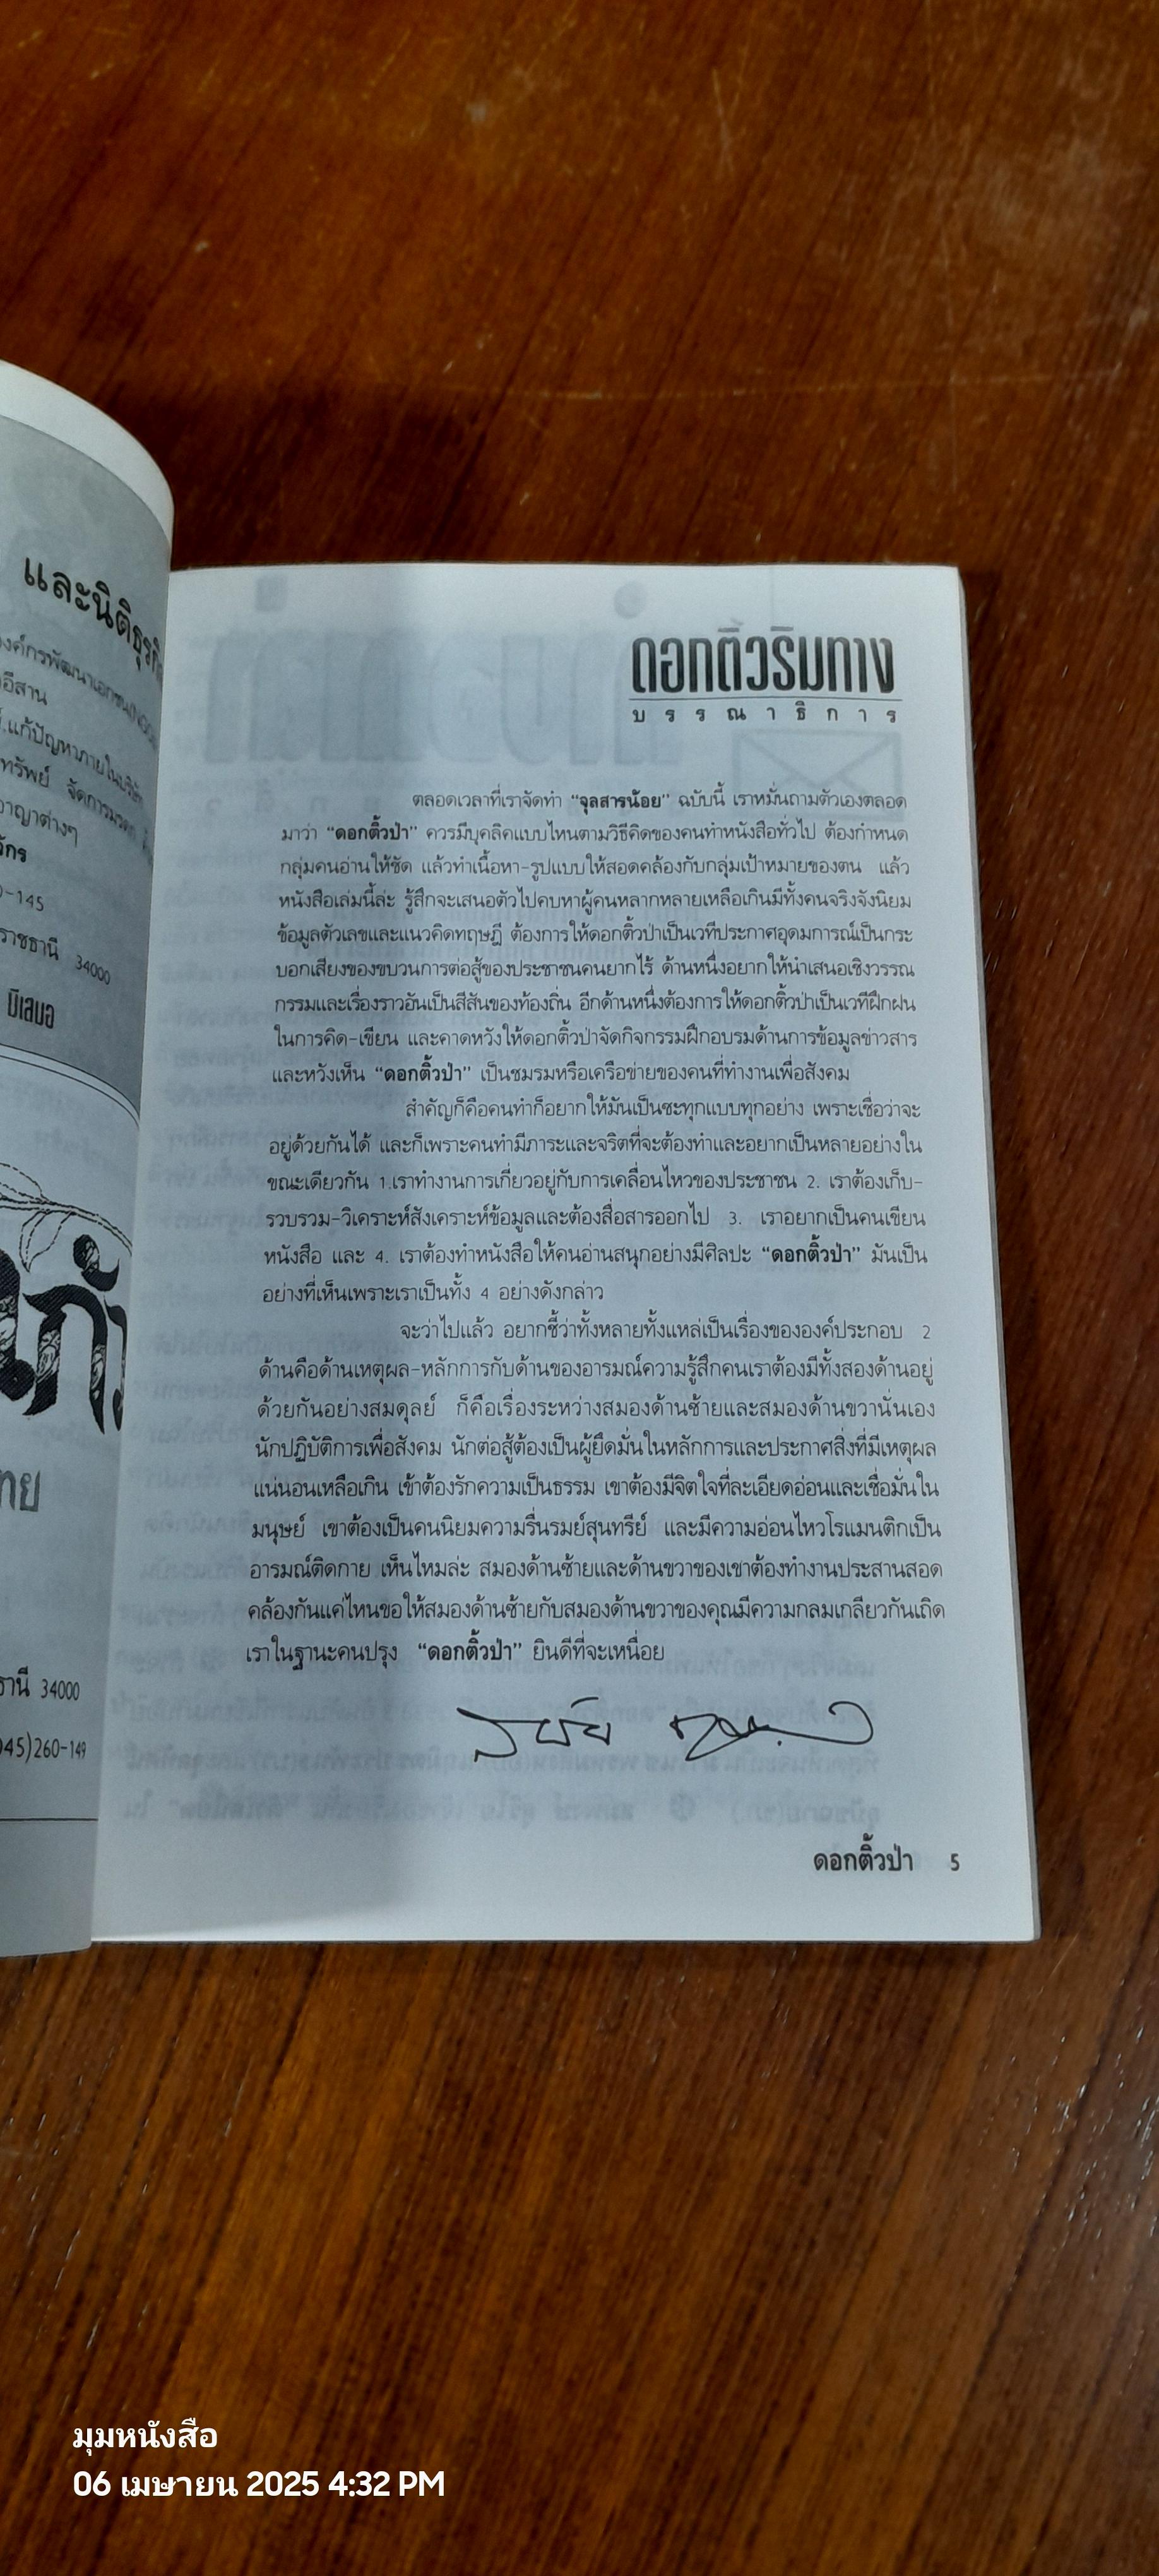 และนิติธุรกิ
องค์กรพัฒนาเอกชน(NGO
อีสาน
.แก้ปัญหาภายในบริษัท
ทรัพย์ จัดการมรดก
อาญาต่างๆ
จักร
0-145
ราชธานี 34000
มีเสมอ
ทย
ธานี 34000
045)260-149
ดอกติ้วริมทาง
บรรณาธิการ
ตลอดเวลาที่เราจัดทำ “จุลสารน้อย” ฉบับนี้ เราหมั่นถามตัวเองตลอด
มาว่า “ดอกติ้วป่า” ควรมีบุคลิคแบบไหนตามวิธีคิดของคนทำหนังสือทั่วไป ต้องกำหนด
กลุ่มคนอ่านให้ชัด แล้วทำเนื้อหา-รูปแบบให้สอดคล้องกับกลุ่มเป้าหมายของตน แล้ว
หนังสือเล่มนี้ล่ะ รู้สึกจะเสนอตัวไปคบหาผู้คนหลากหลายเหลือเกินมีทั้งคนจริงจังนิยม
ข้อมูลตัวเลขและแนวคิดทฤษฎี ต้องการให้ดอกติ้วป่าเป็นเวทีประกาศอุดมการณ์เป็นกระ
บอกเสียงของขบวนการต่อสู้ของประชาชนคนยากไร้ ด้านหนึ่งอยากให้นำเสนอเชิงวรรณ
กรรมและเรื่องราวอันเป็นสีสันของท้องถิ่น อีกด้านหนึ่งต้องการให้ดอกติ้วป่าเป็นเวทีฝึกฝน
ในการคิด-เขียน และคาดหวังให้ดอกติ้วป่าจัดกิจกรรมฝึกอบรมด้านการข้อมูลข่าวสาร
และหวังเห็น “ดอกติ้วป่า” เป็นชมรมหรือเครือข่ายของคนที่ทำงานเพื่อสังคม
สำคัญก็คือคนทำก็อยากให้มันเป็นซะทุกแบบทุกอย่าง เพราะเชื่อว่าจะ
อยู่ด้วยกันได้ และก็เพราะคนทำมีภาระและจริตที่จะต้องทำและอยากเป็นหลายอย่างใน
ขณะเดียวกัน 1.เราทำงานการเกี่ยวอยู่กับการเคลื่อนไหวของประชาชน 2. เราต้องเก็บ-
รวบรวม-วิเคราะห์สังเคราะห์ข้อมูลและต้องสื่อสารออกไป 3. เราอยากเป็นคนเขียน
หนังสือ และ 4. เราต้องทำหนังสือให้คนอ่านสนุกอย่างมีศิลปะ “ดอกติ้วป่า” มันเป็น
อย่างที่เห็นเพราะเราเป็นทั้ง 4 อย่างดังกล่าว
จะว่าไปแล้ว อยากชี้ว่าทั้งหลายทั้งแหล่เป็นเรื่องขององค์ประกอบ 2
ด้านคือด้านเหตุผล-หลักการกับด้านของอารมณ์ความรู้สึกคนเราต้องมีทั้งสองด้านอยู่
ด้วยกันอย่างสมดุลย์ ก็คือเรื่องระหว่างสมองด้านซ้ายและสมองด้านขวานั่นเอง
นักปฏิบัติการเพื่อสังคม นักต่อสู้ต้องเป็นผู้ยึดมั่นในหลักการและประกาศสิ่งที่มีเหตุผล
แน่นอนเหลือเกิน เข้าต้องรักความเป็นธรรม เขาต้องมีจิตใจที่ละเอียดอ่อนและเชื่อมั่นใน
มนุษย์ เขาต้องเป็นคนนิยมความรื่นรมย์สุนทรีย์ และมีความอ่อนไหวโรแมนติกเป็น
อารมณ์ติดกาย เห็นไหมล่ะ สมองด้านซ้ายและด้านขวาของเขาต้องทำงานประสานสอด
คล้องกันแค่ไหนขอให้สมองด้านซ้ายกับสมองด้านขวาของคุณมีความกลมเกลียวกันเถิด
เราในฐานะคนปรุง “ดอกติ้วป่า” ยินดีที่จะเหนื่อย
ดอกติ้วป่า 5
มุมหนังสือ
06 เมษายน 2025 4:32 PM